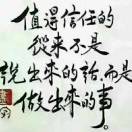 值得信任的
從來不是
說出來的話,而是
做出來的事。